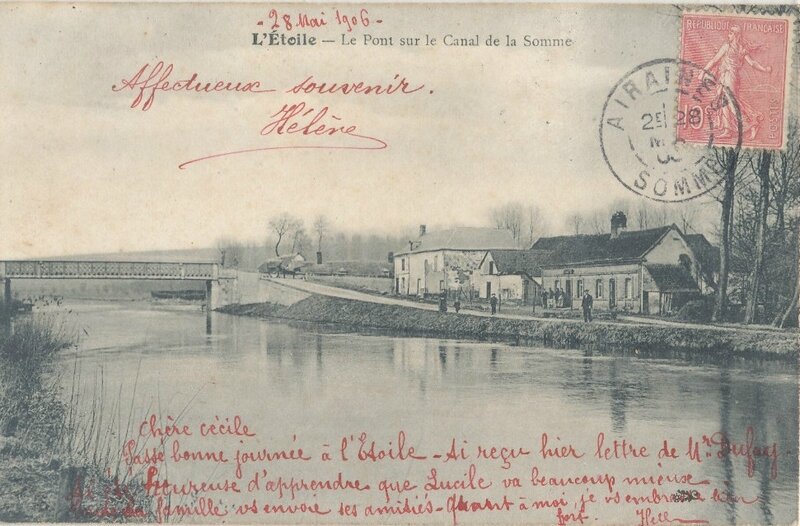 - 28 Mai 1906 -
L'Étoile — Le Pont sur le Canal de la Somme
Affectueux souvenir.
Hélène
RÉPUBLIQUE FRANÇAISE
10
POSTES
AIRAINES
2E 28
SOMME
Chère Cécile
Passé bonne journée à l'Etoile - Ai reçu hier lettre de Mr Dufay.
heureuse d'apprendre que Lucile va beaucoup mieux
famille vs envoie ses amitiés - Quant à moi, je vs embrasse bien
fort.